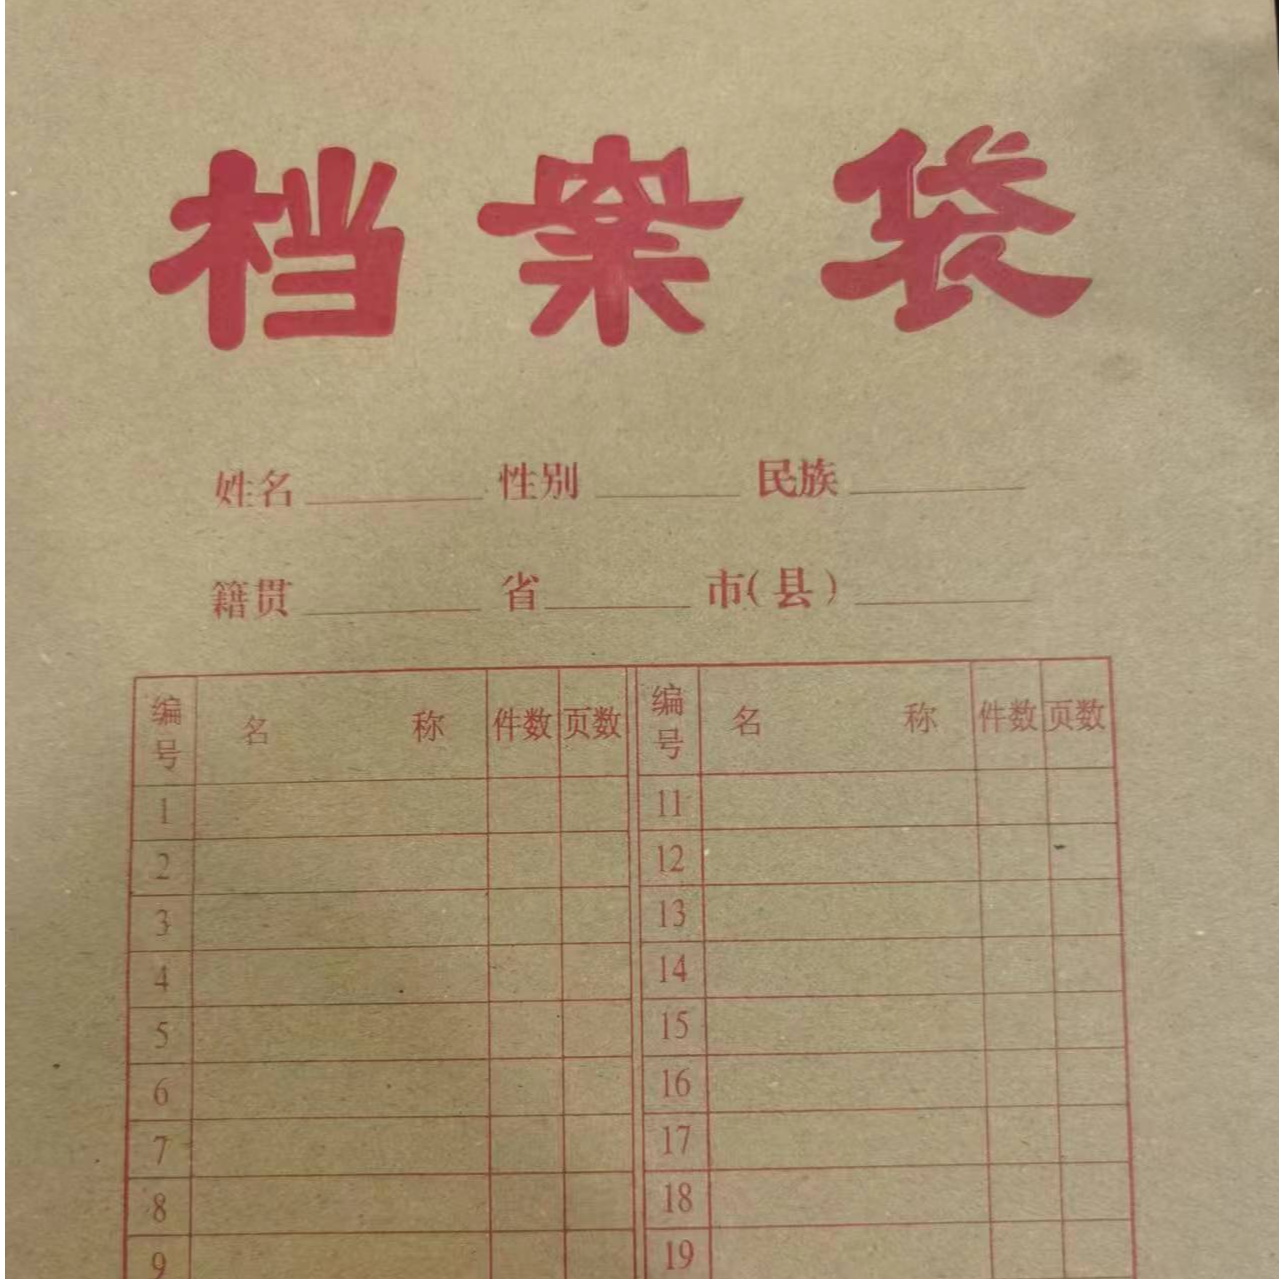 档案袋
姓名 性别 民族
籍贯 省 市(县)
编号 名称 件数 页数 编号 名称 件数 页数
1 11
2 12
3 13
4 14
5 15
6 16
7 17
8 18
9 19